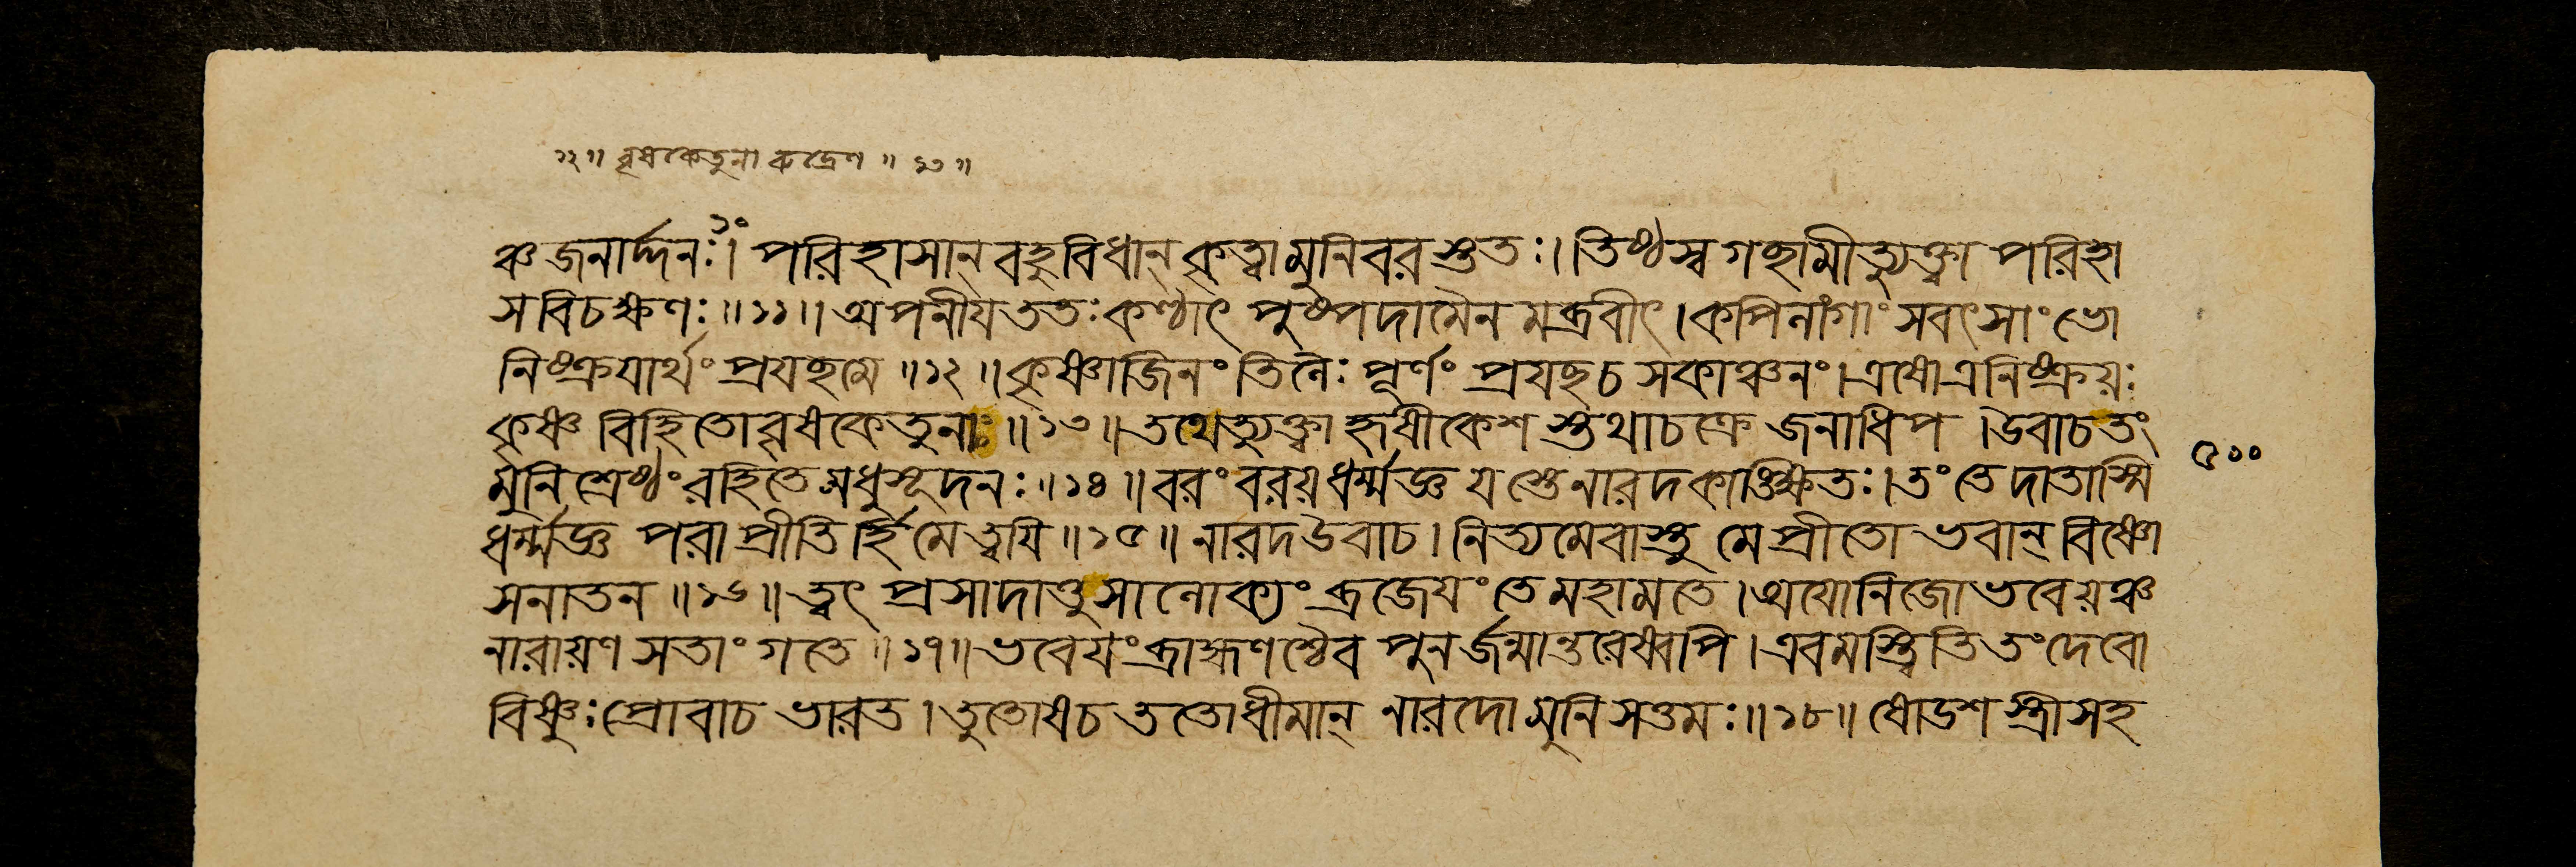 ১২॥ বৃষকেতুনা রুদ্রেণ ॥ ১৩॥
ঞ্চ জনার্দ্দনঃ। পরিহাসান্ বহুবিধান্ কৃত্বা মুনিবরস্ততঃ। তিষ্ঠস্ব গচ্ছামীত্যুক্ত্বা পরিহা
সবিচক্ষণঃ॥১১॥ অপনীয ততঃ কণ্ঠাৎ পুষ্পদামৈনমব্রবীৎ। কপিলাংগাং সবৎসাং ভো
নিষ্ক্রযার্থং প্রযচ্ছমে॥১২॥ কৃষ্ণাজিনং তিলৈঃ পূর্ণং প্রযচ্ছ চ সকাঞ্চনং। এষোত্রনিষ্ক্রয়ঃ
কৃষ্ণ বিহিতো বৃষকেতুনা॥১৩॥ তথেত্যুক্ত্বা হৃষীকেশস্তথাচক্রে জনাধিপ। উবাচ তং
মুনিশ্রেষ্ঠং রহিতে মধুসূদনঃ॥১৪॥ বরং বরয় ধর্ম্মজ্ঞ যস্তে নারদ কাঙ্ক্ষিতঃ। তং তে দাতাস্মি
৫০০
ধর্ম্মজ্ঞ পরা প্রীতির্হি মে ত্বযি॥১৫॥ নারদ উবাচ। নিত্যমেবাস্তু মে প্রীতো ভবান্ বিষ্ণো
সনাতন॥১৬॥ ত্বৎ প্রসাদাত্তু সালোক্যং ব্রজেযং তে মহামতে। অযোনিজো ভবেয়ঞ্চ
নারায়ণ সতাং গতে॥১৭॥ ভবেযং ব্রাহ্মণশ্চৈব পুনর্জন্মান্তরেষ্বপি। এবমস্ত্বিতি তং দেবো
বিষ্ণুঃ প্রোবাচ ভারত। তুতোষ চ ততো ধীমান্ নারদো মুনিসত্তমঃ॥১৮॥ ষোডশ স্ত্রীসহ